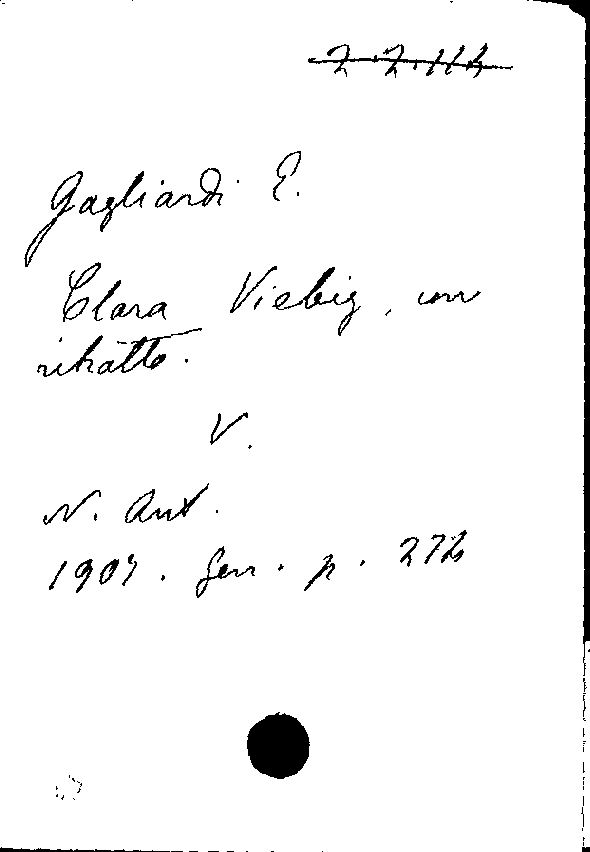 2.2.114
Gagliardi E.
Clara Viebig, con
ritratto.
V.
N. Ant.
1907. Gen. p. 272